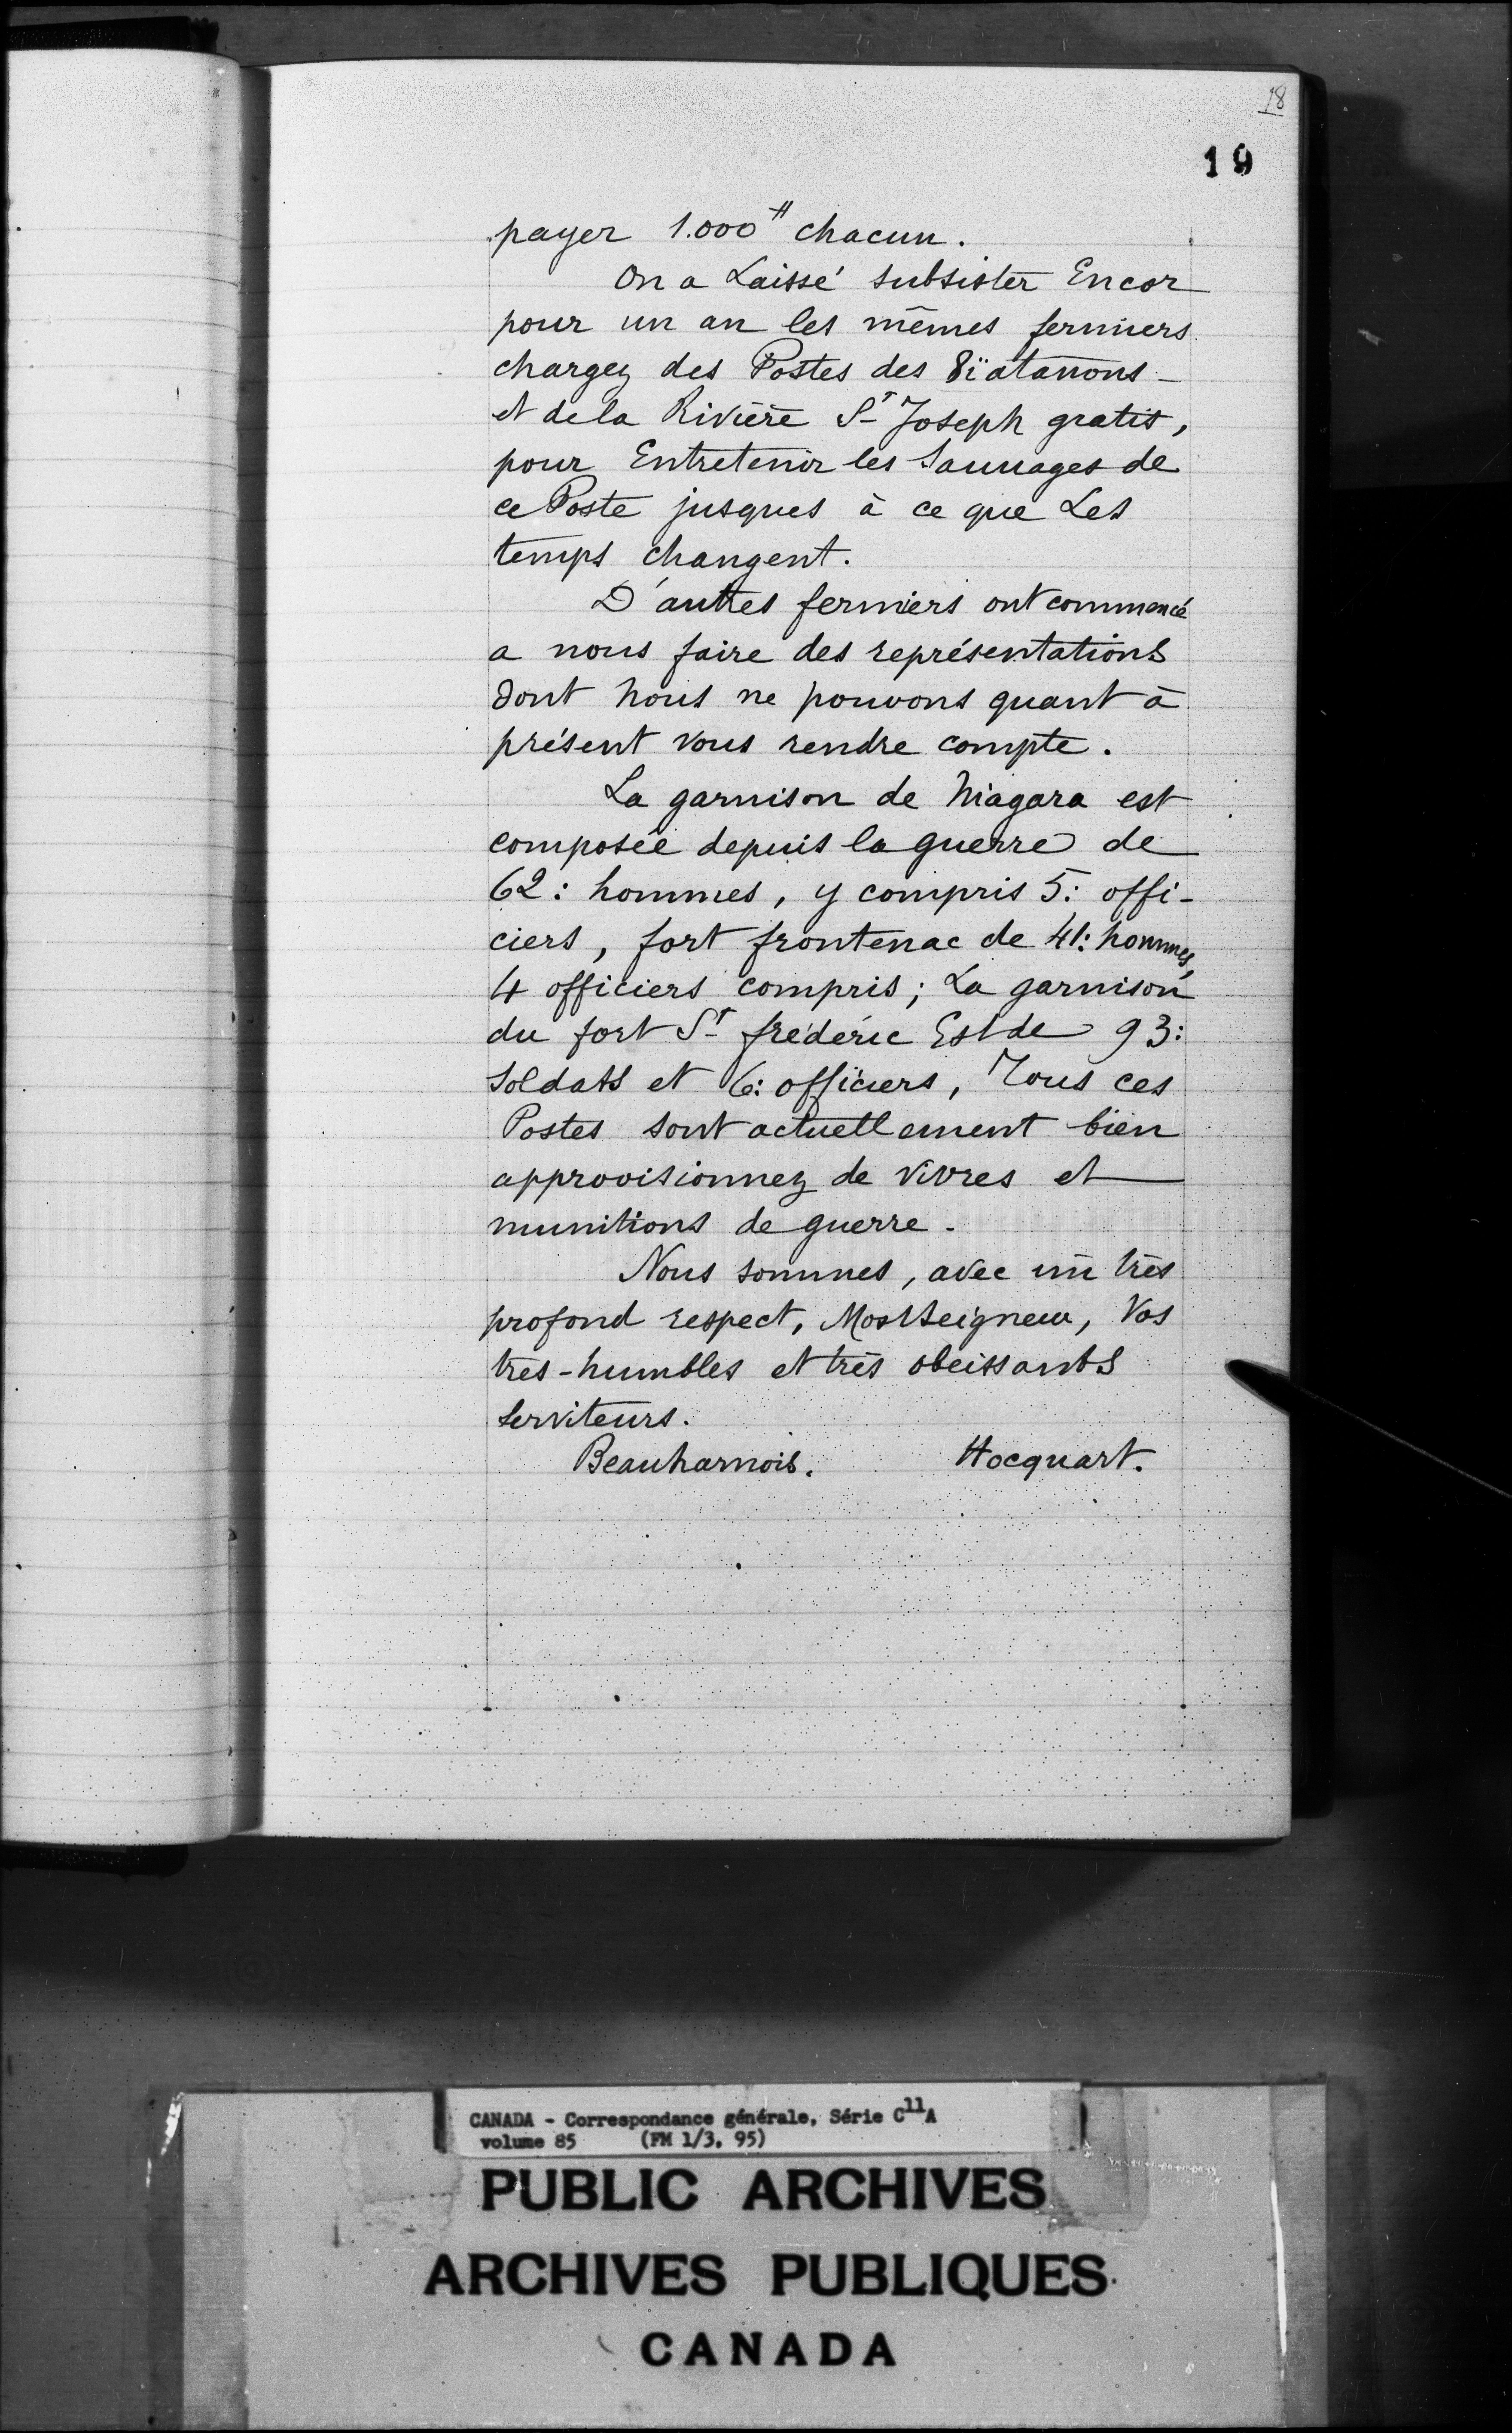 18
19
payer 1.000ᴴ chacun.
On a Laissé subsister Encor
pour un an les mêmes fermiers
chargez des Postes des 8ïatanons
et de la Rivière S.ᵗ Joseph gratis,
pour Entretenir les Sauuages de
ce Poste jusques à ce que Les
temps changent.
D'autres fermiers ont commencé
a nous faire des représentations
dont nous ne pouvons quant à
présent vous rendre compte.
La garnison de Niagara est
composée depuis la guerre de
62: hommes, y compris 5: offi-
ciers, fort frontenac de 41: hommes,
4 officiers compris; La garnison
du fort S.ᵗ frédéric Est de 93:
soldats et 6: officiers, Tous ces
Postes sont actuellement bien
approvisionnez de vivres et
munitions de guerre.
Nous sommes, avec un très
profond respect, Monseigneur, Vos
très-humbles et très obeissants
serviteurs.
Beauharnois. Hocquart.
CANADA - Correspondance générale, Série C¹¹A
volume 85 (FM 1/3, 95)
PUBLIC ARCHIVES
ARCHIVES PUBLIQUES
CANADA